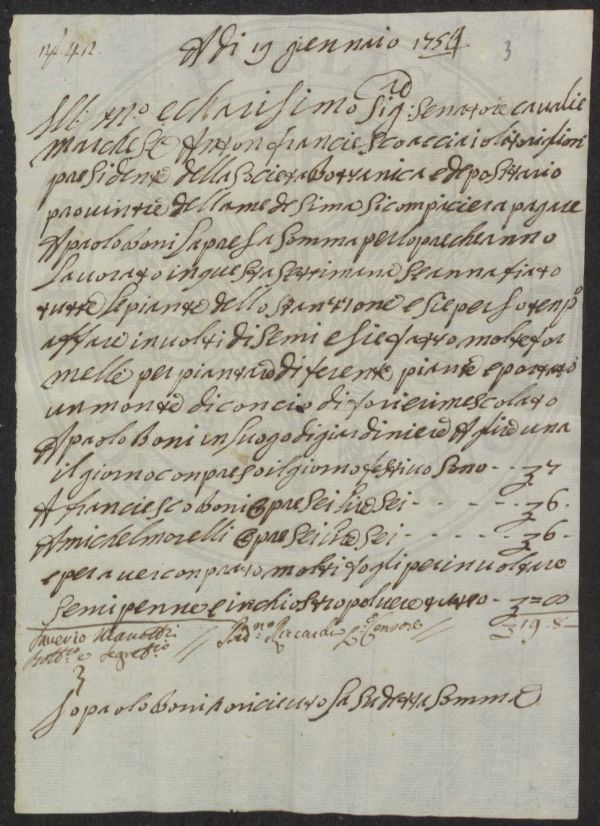 N 42.
A di 19 gennaio 1754
3
Ill: mo e charisimo Sig: Senatore cavalie
marchese Anton francie sco acciaioli torigioni
presidente della Societa bottanica e depositario
provintie della me de sima si compiaciera pagare
A paolo boni la presa somma per lopre che anno
lavorato in questa settimana se anna fiato
tutte le piante dello stantione e sie perso tenpo
affare involti di semi e sie fatto molte for
melle per piantare diferente piante e portato
un monte di concio di fori e rimescolato
A paolo Boni in luogo di giardiniere A lire una
il giorno conpreso il giorno festivo sono - - 7
A franciesco boni opre sei lire sei - - - - - 6.
A michel morelli opre sei lire sei - - - - - 6 -
e per aver conprato molti fogli per involtare
semi penne e inchiostro polvere tutto - -
Saverio Manetti // Ricardi Censore //
Bott.co e Segret.io
19. 8 -
Io paolo boni o riciuto la sudetta somma